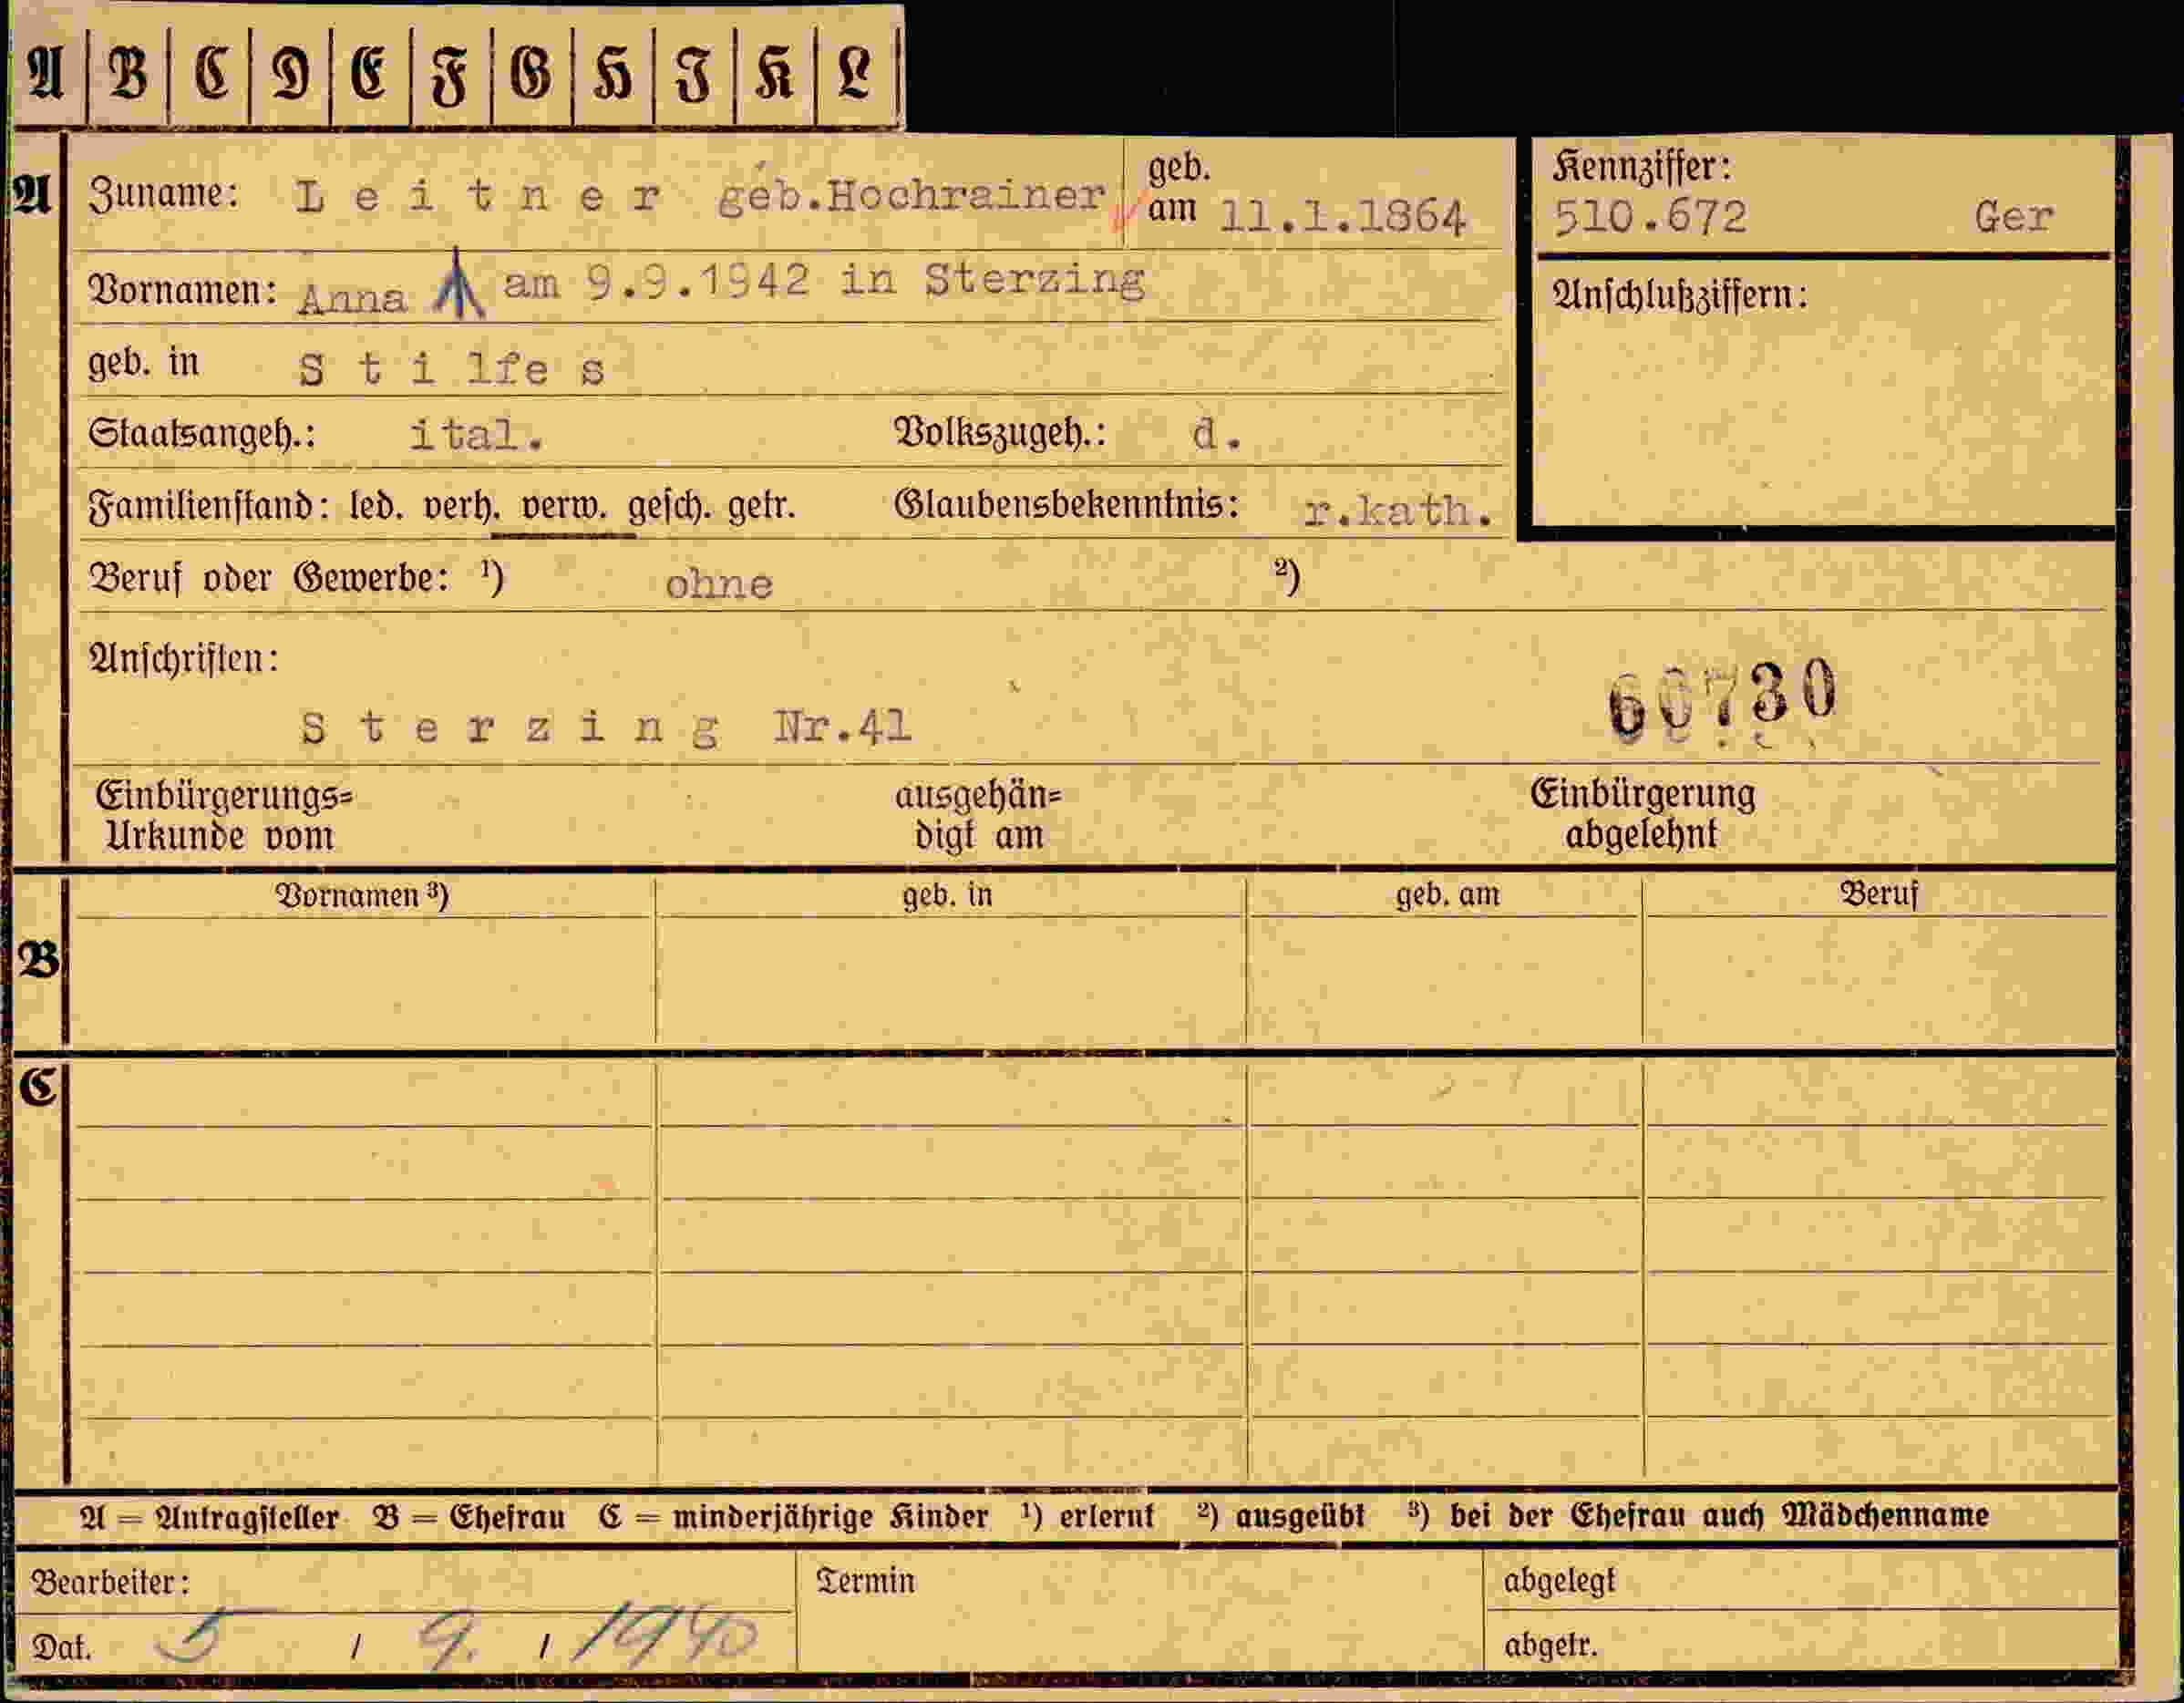 A B C D E F G H I K L
A
Zuname: Leitner geb.Hochrainer geb. am 11.1.1864
Kennziffer:
510.672 Ger
Vornamen: Anna am 9.9.1942 in Sterzing
Anschlußziffern:
geb. in Stilfes
Staatsangeh.: ital. Volkszugeh.: d.
Familienstand: led. verh. verw. gesch. getr. Glaubensbekenntnis: r.kath.
Beruf oder Gewerbe: ¹) ohne ²)
Anschriften:
60730
Sterzing Nr.41
Einbürgerungs= ausgehän= Einbürgerung
Urkunde vom digt am abgelehnt
B
Vornamen ³) geb. in geb. am Beruf
C
A = Antragsteller B = Ehefrau C = minderjährige Kinder ¹) erlernt ²) ausgeübt ³) bei der Ehefrau auch Mädchenname
Bearbeiter: Termin abgelegt
Dat. 5 / 9. / 1940 abgetr.